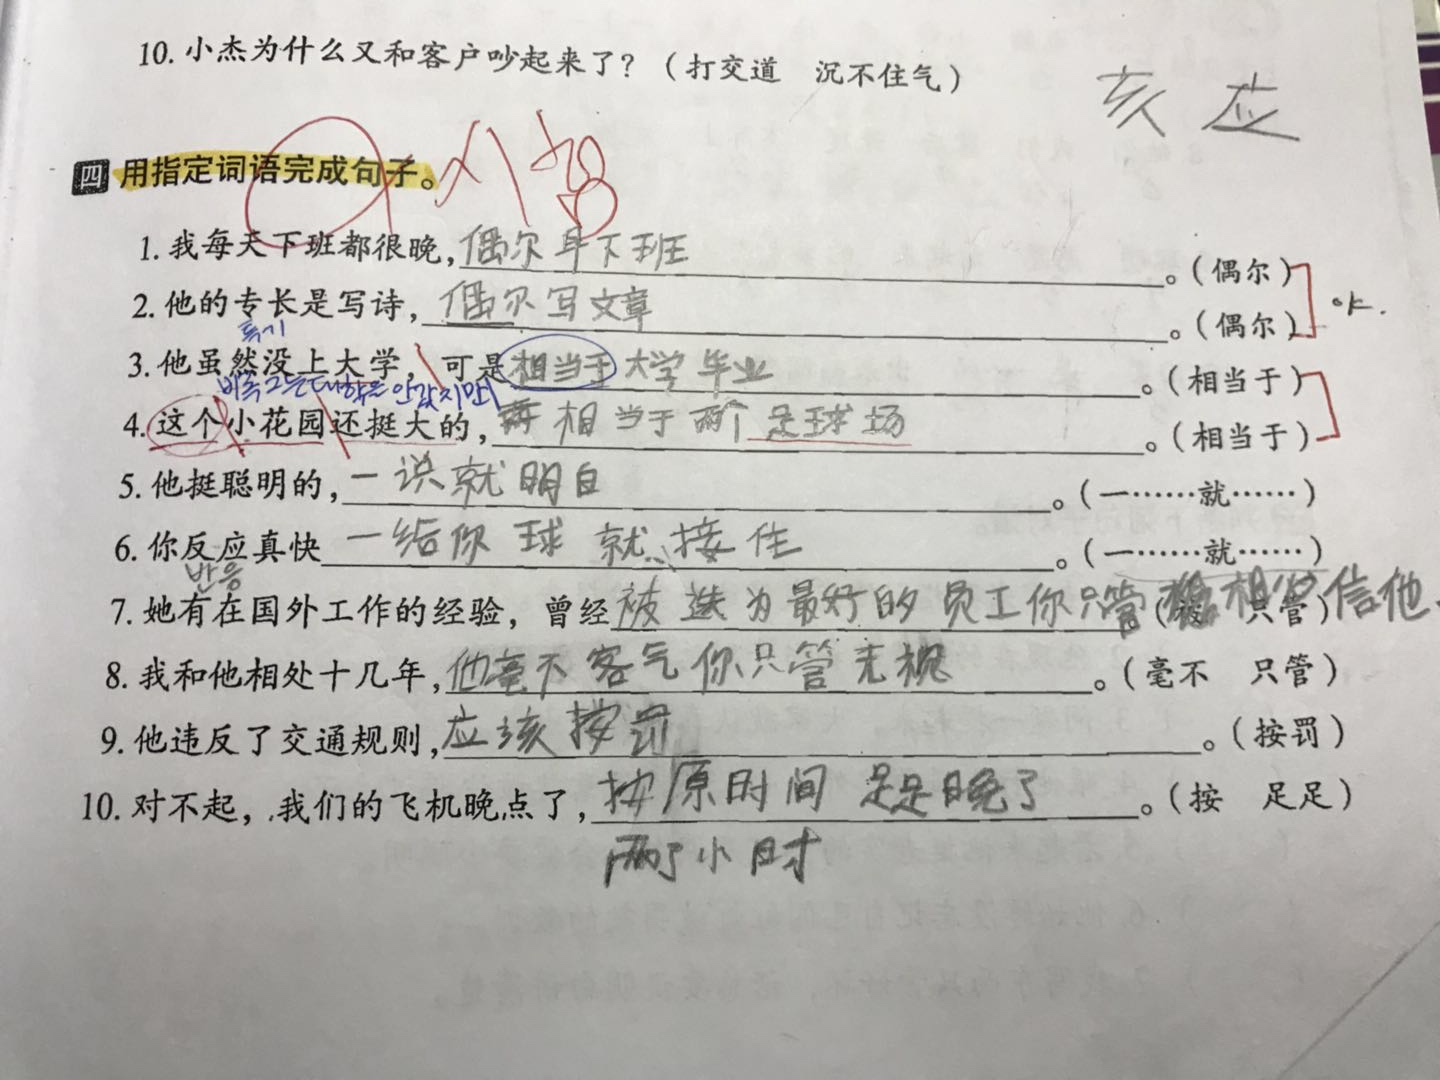 10. 小杰为什么又和客户吵起来了？（打交道 沉不住气）
亥 应
四 用指定词语完成句子。
1. 我每天下班都很晚，偶尔早下班。（偶尔）
2. 他的专长是写诗，偶尔写文章。（偶尔） ok.
특기
3. 他虽然没上大学，可是相当于大学毕业。（相当于）
비록 그는 대학은 안 갔지만
4. 这个小花园还挺大的，相当于两个足球场。（相当于）
5. 他挺聪明的，一说就明白。（一……就……）
6. 你反应真快一给你球就接住。（一……就……）
반응
7. 她有在国外工作的经验，曾经被选为最好的员工你只管相信他.（被 只管）
8. 我和他相处十几年，他毫不客气你只管无视。（毫不 只管）
9. 他违反了交通规则，应该按罚。（按罚）
10. 对不起，我们的飞机晚点了，按原时间足足晚了。（按 足足）
两个小时